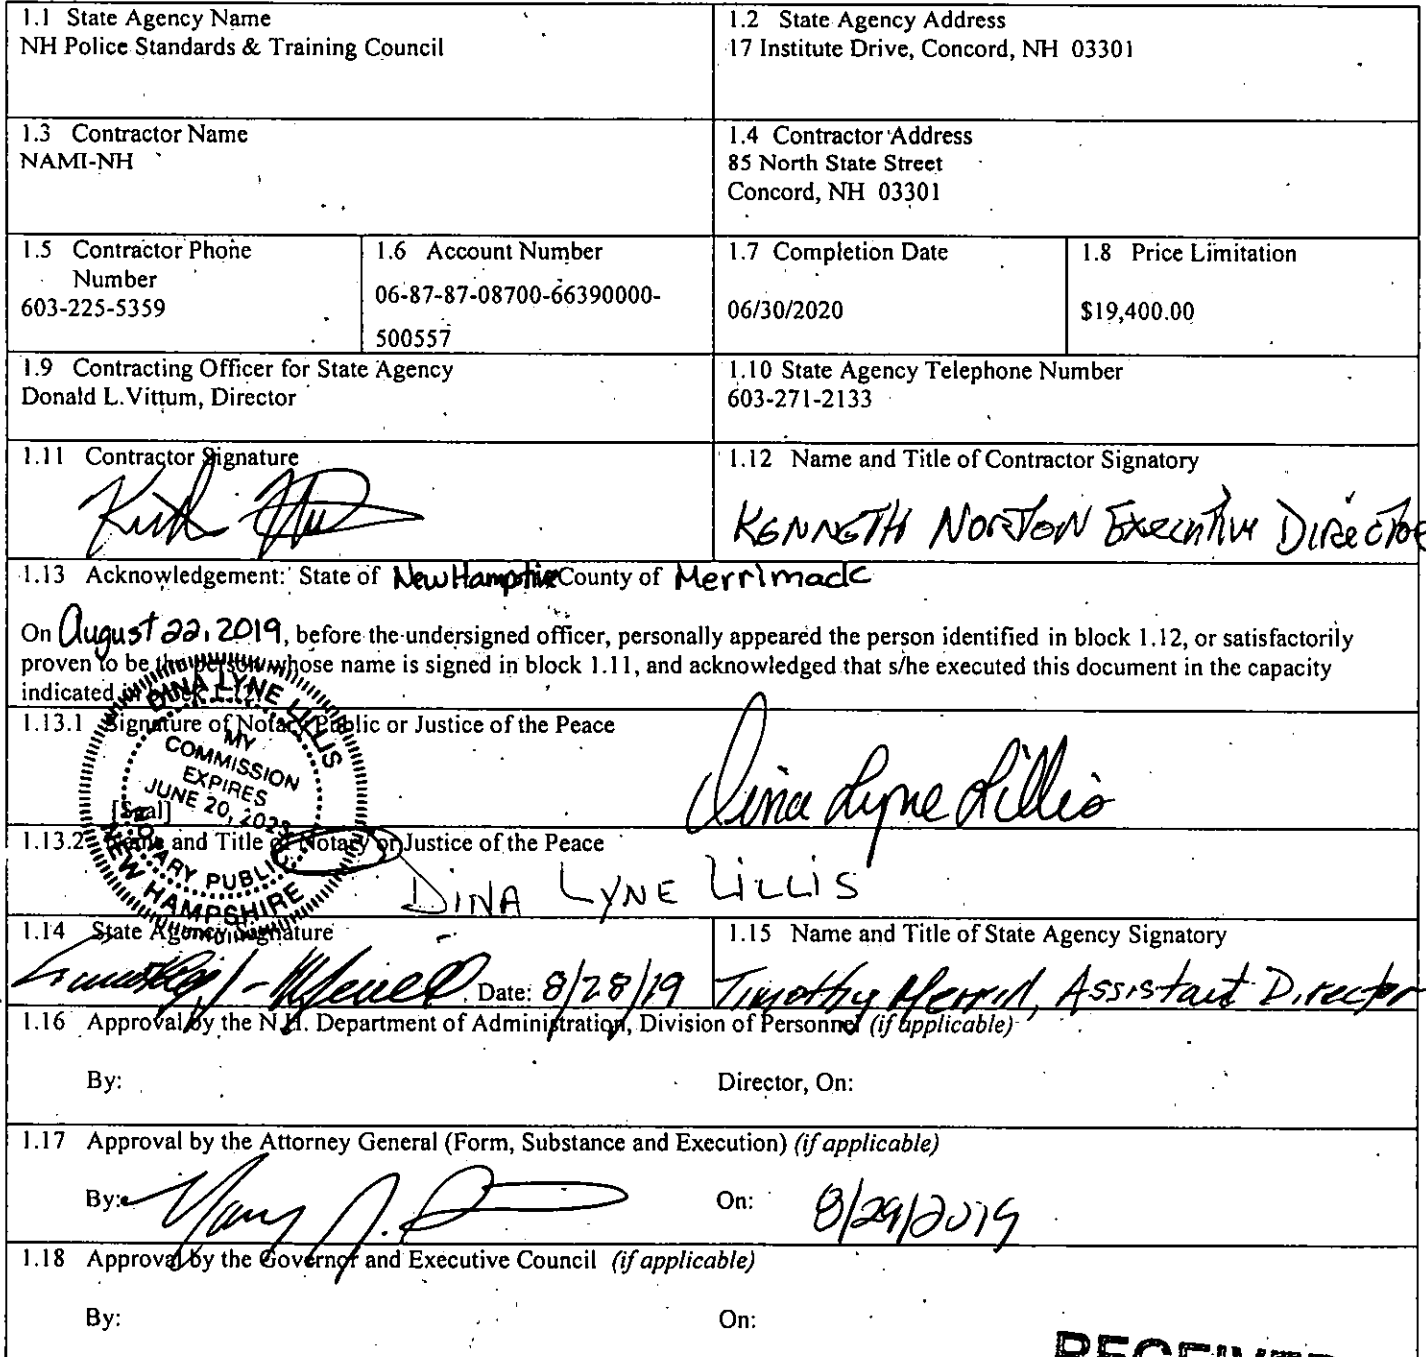 1.1 State Agency Name
NH Police Standards & Training Council
1.2 State Agency Address
17 Institute Drive, Concord, NH 03301
1.3 Contractor Name
NAMI-NH
1.4 Contractor Address
85 North State Street
Concord, NH 03301
1.5 Contractor Phone
Number
603-225-5359
1.6 Account Number
06-87-87-08700-66390000-
500557
1.7 Completion Date
06/30/2020
1.8 Price Limitation
$19,400.00
1.9 Contracting Officer for State Agency
Donald L.Vittum, Director
1.10 State Agency Telephone Number
603-271-2133
1.11 Contractor Signature
1.12 Name and Title of Contractor Signatory
KENNETH NORTON Executive Director
1.13 Acknowledgement: State of New Hampshire County of Merrimack
On August 22, 2019, before the undersigned officer, personally appeared the person identified in block 1.12, or satisfactorily
proven to be the person whose name is signed in block 1.11, and acknowledged that s/he executed this document in the capacity
indicated in block 1.12.
1.13.1 Signature of Notary Public or Justice of the Peace
Dina Lyne Lillis
[Seal]
DINA LYNE LILLIS
MY
COMMISSION
EXPIRES
JUNE 20, 2023
NOTARY PUBLIC
NEW HAMPSHIRE
1.13.2 Name and Title of Notary or Justice of the Peace
DINA LYNE LILLIS
1.14 State Agency Signature
Date: 8/28/19
1.15 Name and Title of State Agency Signatory
Timothy Merrill, Assistant Director
1.16 Approval by the N.H. Department of Administration, Division of Personnel (if applicable)
By:
Director, On:
1.17 Approval by the Attorney General (Form, Substance and Execution) (if applicable)
By:
On: 8/29/2019
1.18 Approval by the Governor and Executive Council (if applicable)
By:
On:
RECEIVED